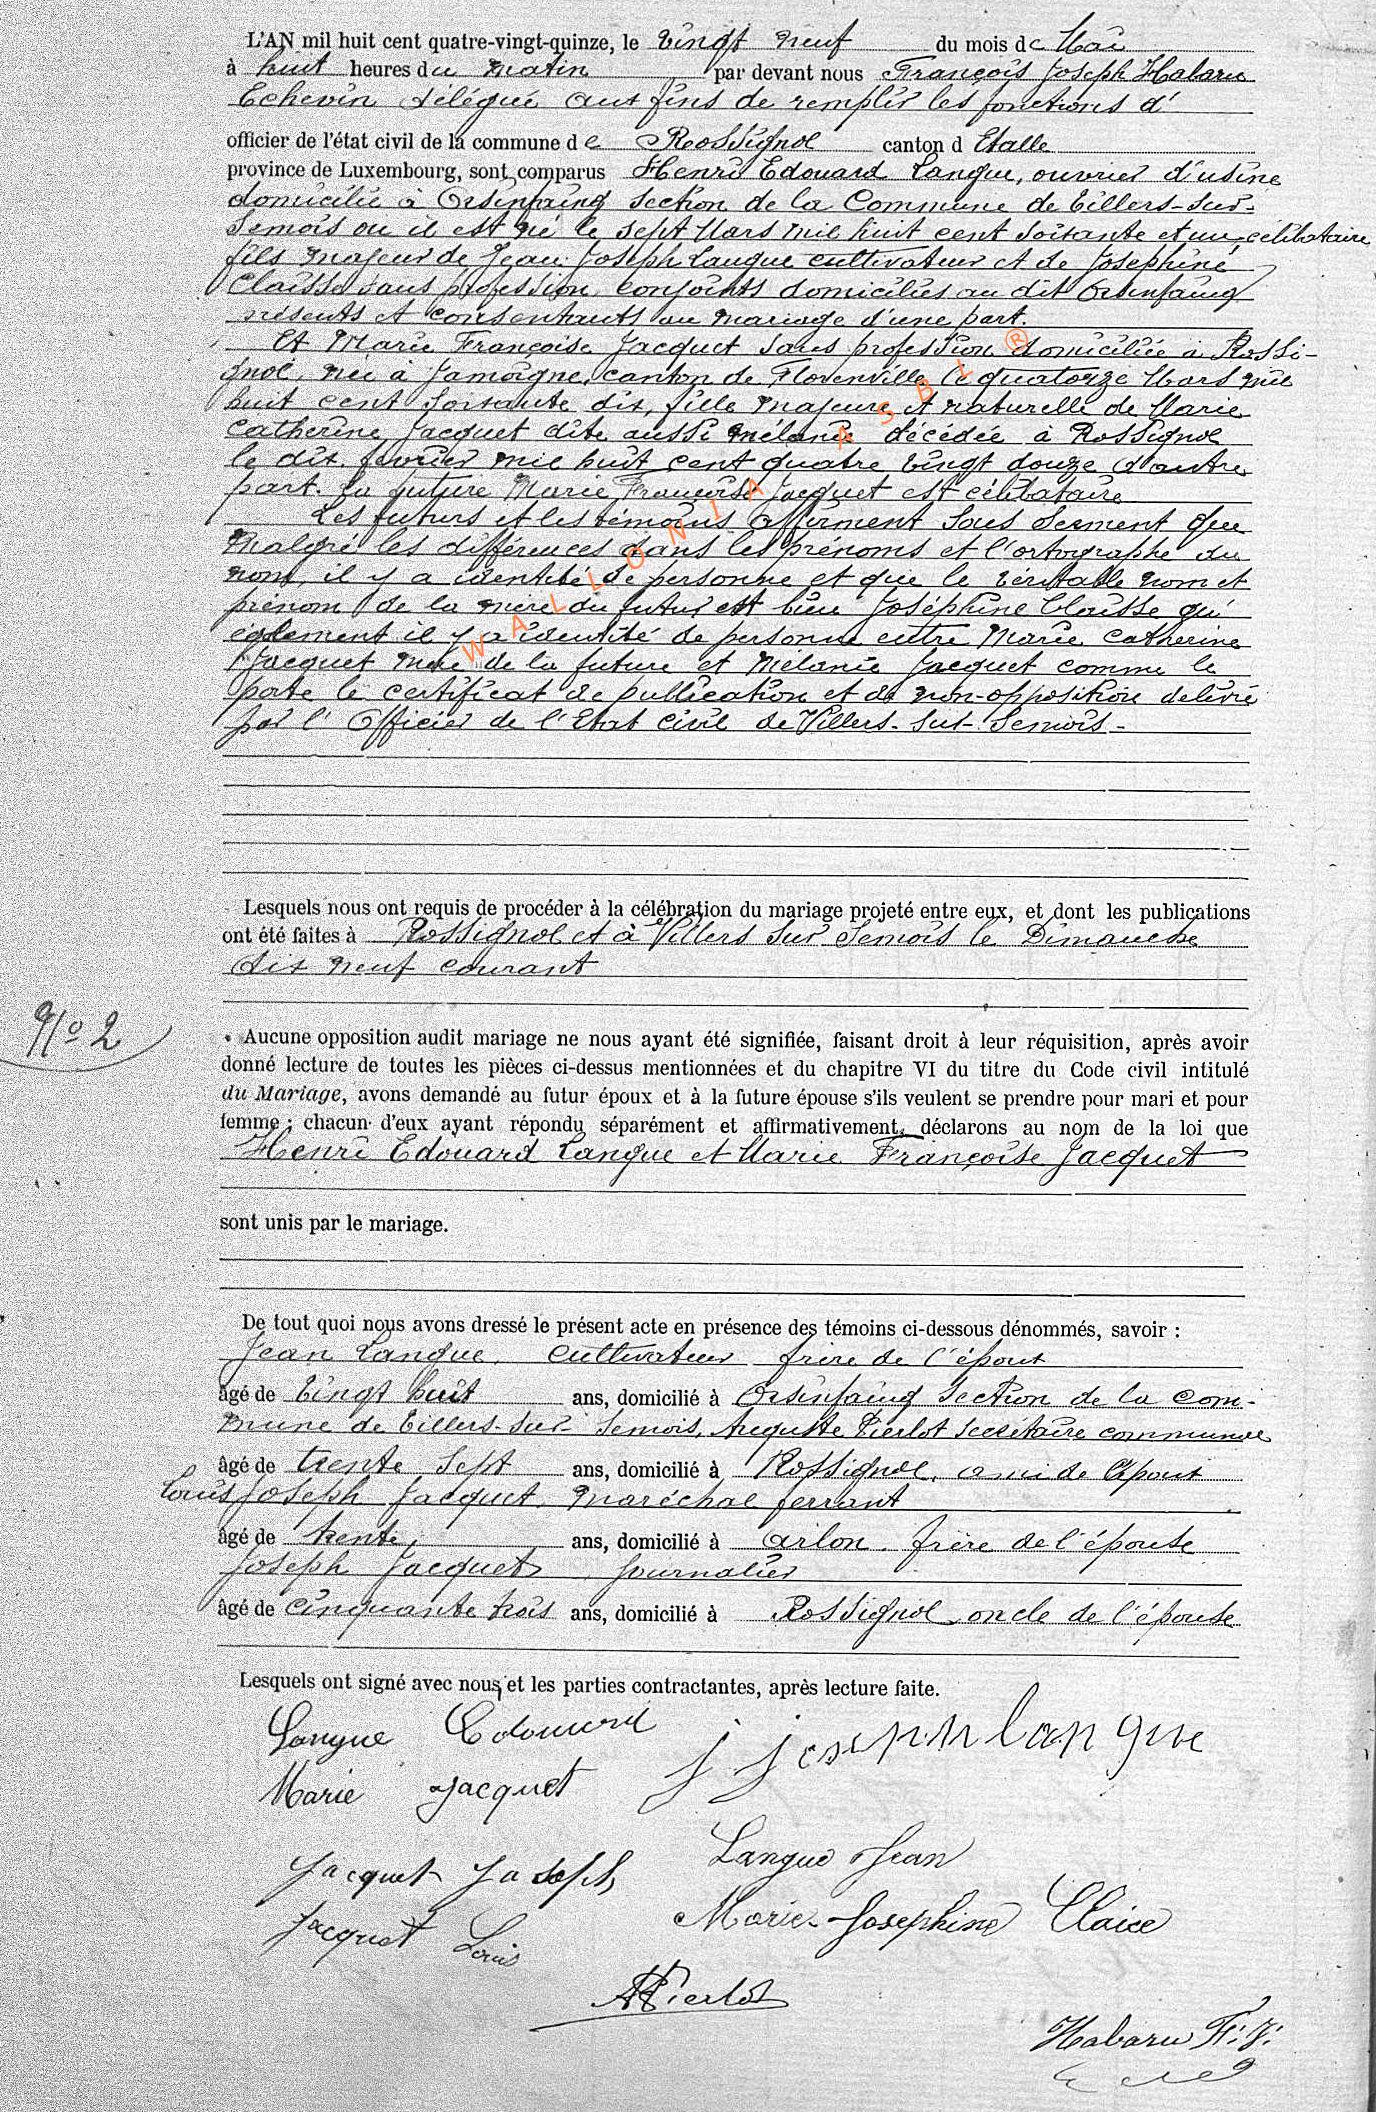 L'AN mil huit cent quatre-vingt-quinze, le vingt neuf du mois de Mai
à huit heures du matin par devant nous François Joseph Habaru
Echevin délégué aux fins de remplir les fonctions d'
officier de l'état civil de la commune de Rossignol canton d Etalle
province de Luxembourg, sont comparus Henri Edouard Langue, ouvrier d'usine
domicilié à Orsinfaing section de la Commune de Villers-sur-
Semois ou il est né le sept Mars mil huit cent soixante et un, célibataire
fils majeur de Jean Joseph Langue cultivateur et de Josephine
Claisse sans profession, conjoints domiciliés au dit Orsinfaing
présents et consentants au mariage d'une part.
Et Marie Françoise Jacquet sans profession domiciliée à Rossi-
gnol, née à Jamoigne, canton de Florenville le quatorze Mars mil
huit cent soixante dix, fille majeure et naturelle de Marie
Catherine Jacquet dite aussi Mélanie décédée à Rossignol
le dix février mil huit cent quatre vingt douze d'autre
part. La future Marie Françoise Jacquet est célibataire
Les futurs et les témoins affirment sous serment que
malgré les différences dans les prénoms et l'ortographe du
nom, il y a identité de personne et que le véritable nom et
prénom de la mère du futur est bien Joséphine Claisse qu'
également il y a identité de personne entre Marie Catherine
Jacquet mère de la future et Mélanie Jacquet comme le
porte le certificat de publication et de non-opposition delivré
par l'Officier de l'Etat civil de Villers-sur-Semois-
WALLONIA ASBL ®
Lesquels nous ont requis de procéder à la célébration du mariage projeté entre eux, et dont les publications
ont été faites à Rossignol et à Villers sur Semois le Dimanche
dix neuf courant
N° 2
Aucune opposition audit mariage ne nous ayant été signifiée, faisant droit à leur réquisition, après avoir
donné lecture de toutes les pièces ci-dessus mentionnées et du chapitre VI du titre du Code civil intitulé
du Mariage, avons demandé au futur époux et à la future épouse s'ils veulent se prendre pour mari et pour
femme ; chacun d'eux ayant répondu séparément et affirmativement, déclarons au nom de la loi que
Henri Edouard Langue et Marie Françoise Jacquet
sont unis par le mariage.
De tout quoi nous avons dressé le présent acte en présence des témoins ci-dessous dénommés, savoir :
Jean Langue, cultivateur frère de l'époux
âgé de vingt huit ans, domicilié à Orsinfaing section de la com-
mune de Villers-sur-Semois, Auguste Pierlot secrétaire communal
âgé de trente sept ans, domicilié à Rossignol, ami de l'époux
Louis Joseph Jacquet, maréchal ferrant
âgé de trente ans, domicilié à Arlon, frère de l'épouse
Joseph Jacquet, journalier
âgé de cinquante trois ans, domicilié à Rossignol oncle de l'épouse
Lesquels ont signé avec nous et les parties contractantes, après lecture faite.
Langue Edouard j joseph langue
Marie Jacquet
Langue Jean
Jacquet Joseph
Marie-Josephine Claice
Jacquet Louis
A Pierlot
Habaru F. J.